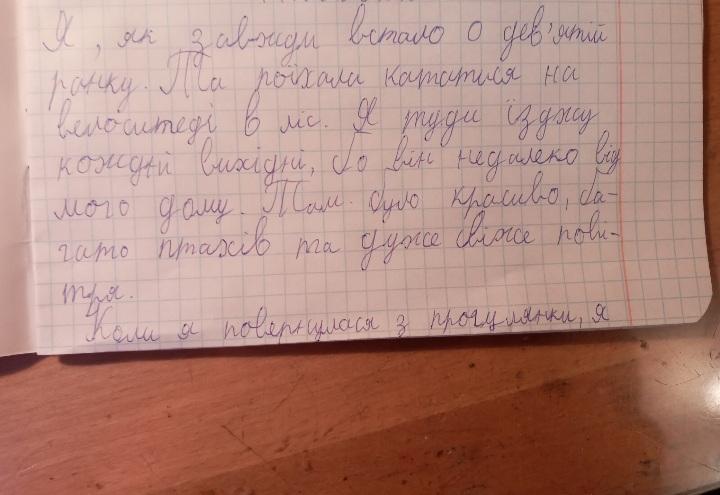 Я, як завжди встало о дев'ятій
ранку. Та поїхала кататися на
велосипеді в ліс. Я туди їзджу
кождні вихідні, бо він недалеко від
мого дому. Там було красиво, ба-
гато птахів та дуже свіже пові-
тря.
Коли я повернулася з прогулянки, я